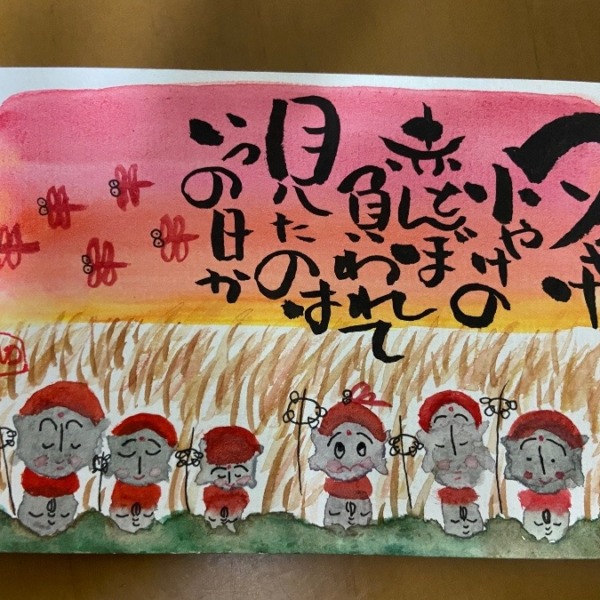 夕やけ
小やけの
赤とんぼ
負われて
見たのは
いつの日か